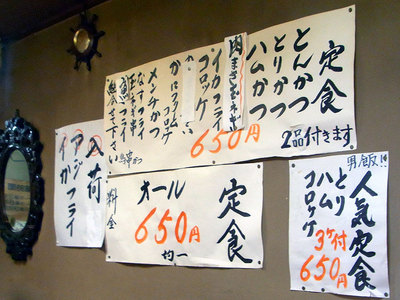 定食
とんかつ
とりかつ
ハムかつ
肉
イカフライ
コロッケ
650円
2品付きます
かにクリーム
コロッケ
メンチかつ
なすフライ
玉ネギ串
組合せ下さい
入荷
アジ
イカフライ
定食
オール
650円
均一
料金
男飯!!
人気定食
とり
ハム
コロッケ
3ケ付
650円